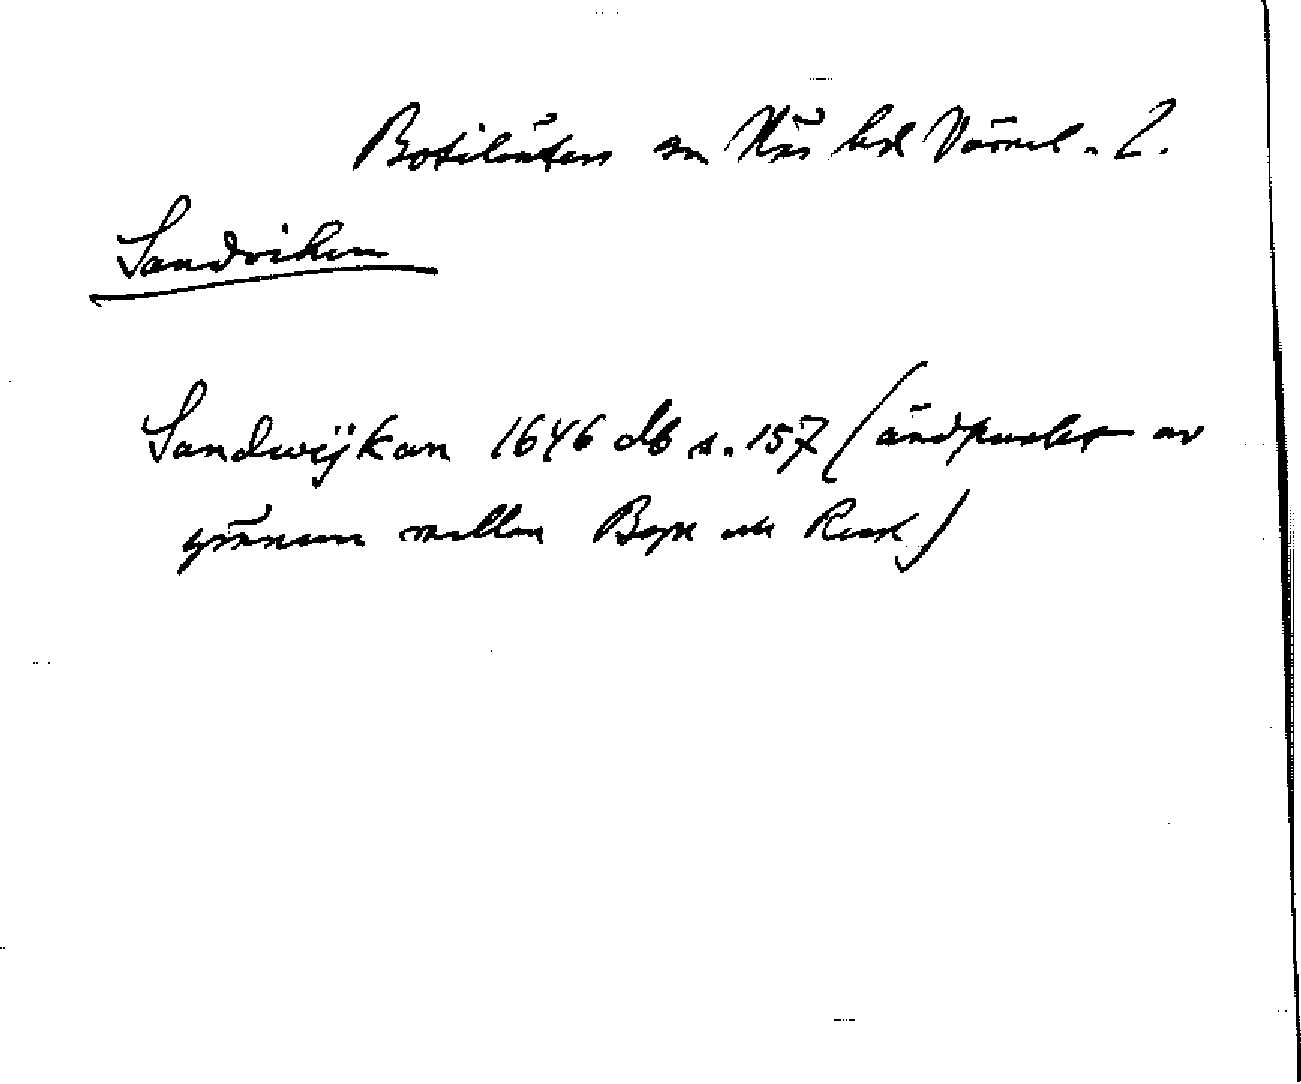 Botilsäter sn Näs hd Värml. l.
Sandviken
Sandwijkan 1646 db s. 157 (ändpunkt av
gränsen mellan och )